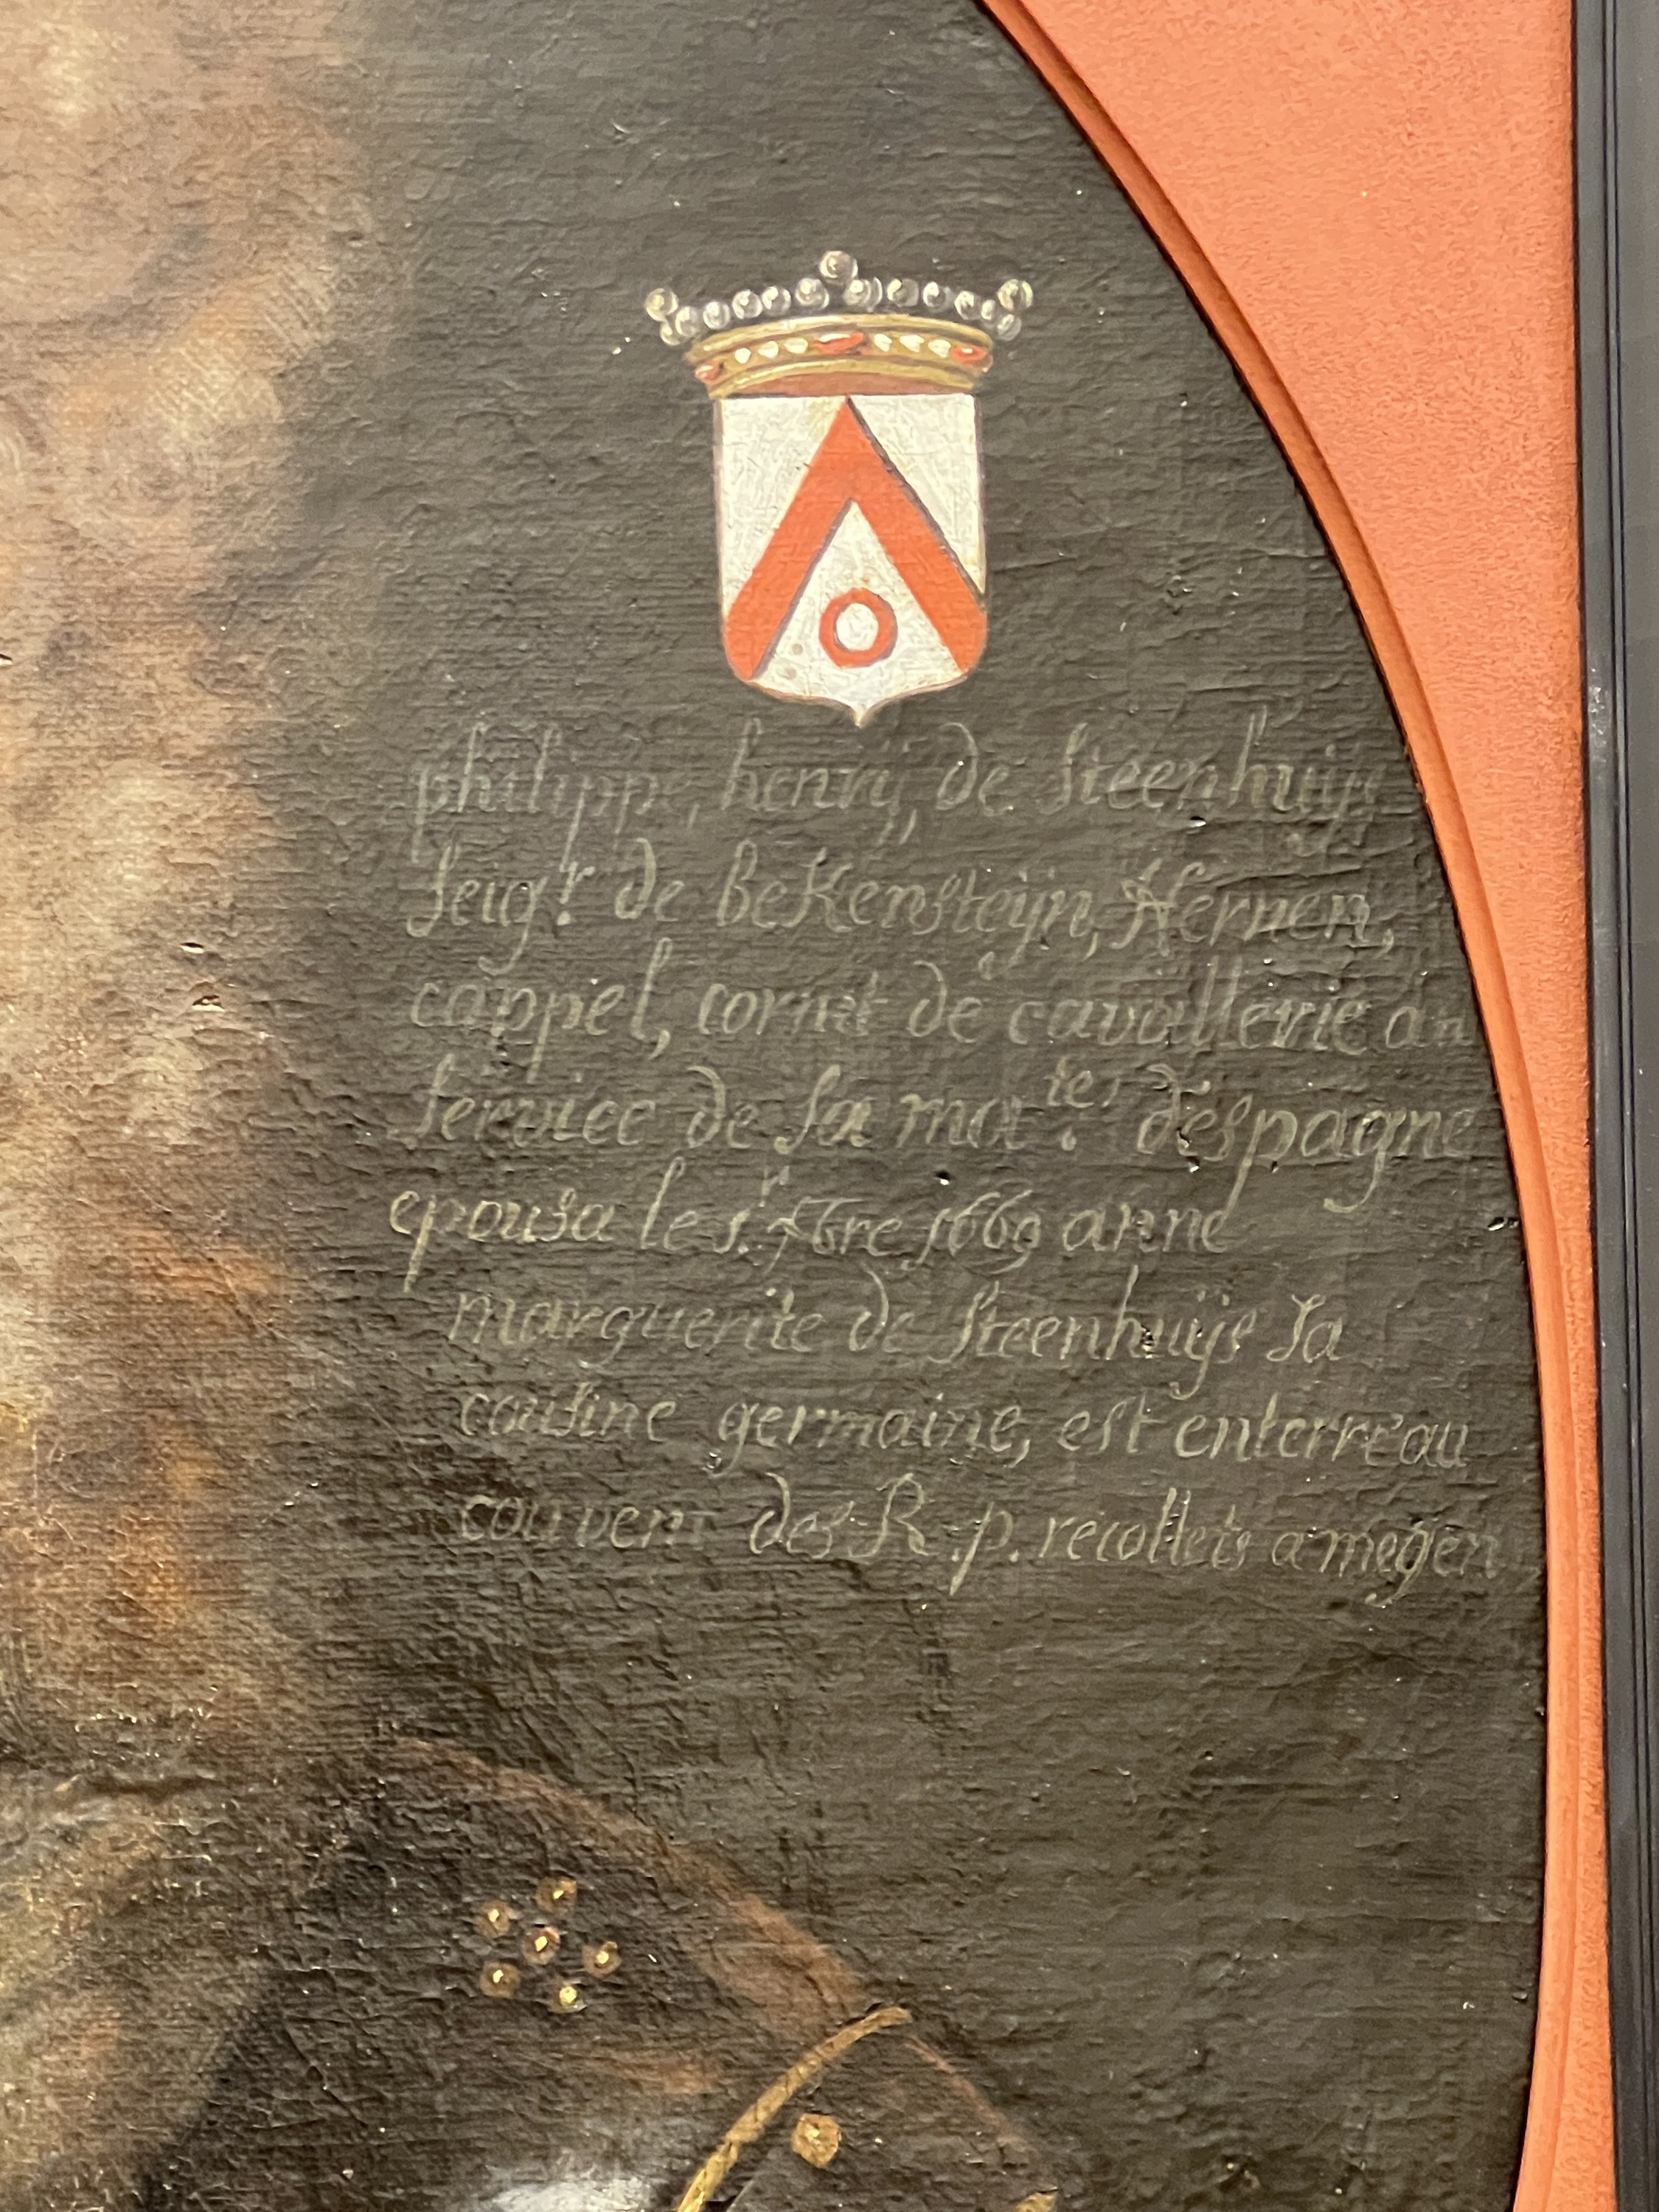 philippe, henrij, de Steenhuijs
Seigr. de beKensteijn, Hernen,
cappel, cornet de cavallerie au
service de sa matte. d'espagne
epousa le 1.r 7bre 1669 anne
marguerite de Steenhuijs sa
cousine germaine, est enterre au
couvent des R.p. recollets a megen